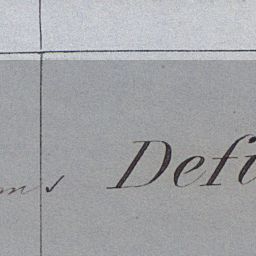 ms Defi